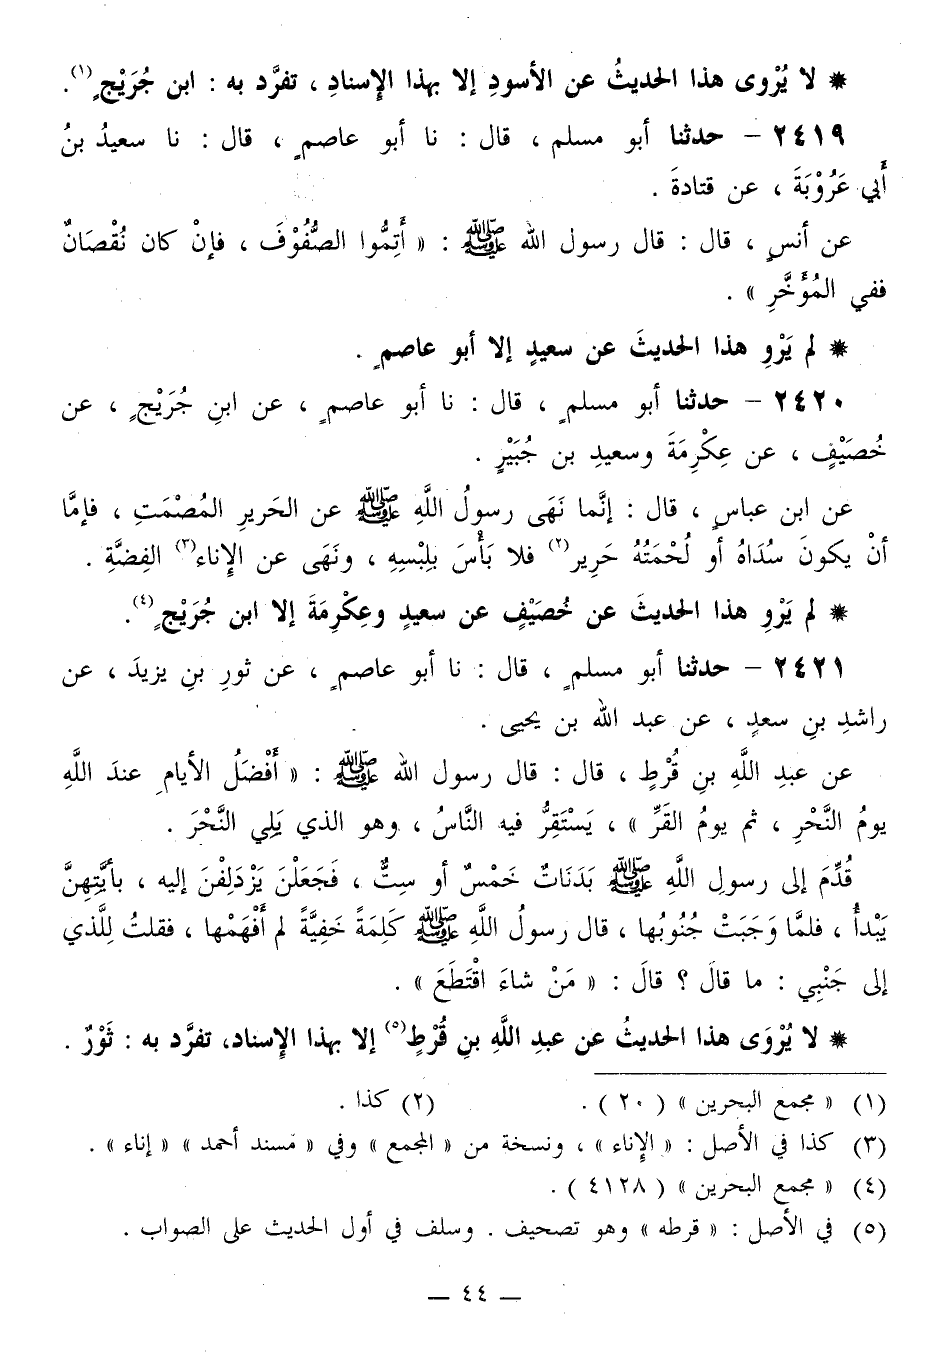 * لا يُرْوى هذا الحديثُ عن الأسودِ إلا بهذا الإسنادِ ، تفرَّد به : ابن جُرَيْجٍ (١).
٢٤١٩ – حدثنا أبو مسلم ، قال : نا أبو عاصمٍ ، قال : نا سعيدُ بنُ
أَبي عَرُوْبَةَ ، عن قتادةَ .
عن أنسٍ ، قال : قال رسول الله ﷺ : « أَتِمُّوا الصُّفُوْفَ ، فإنْ كان نُقْصَانٌ
ففي المُؤَخَّرِ » .
* لم يَرْوِ هذا الحديثَ عن سعيدٍ إلا أبو عاصمٍ .
٢٤٢٠ – حدثنا أبو مسلمٍ ، قال : نا أبو عاصمٍ ، عن ابنِ جُرَيْجٍ ، عن
خُصَيْفٍ ، عن عِكْرِمَةَ وسعيدِ بن جُبَيْرٍ .
عن ابن عباسٍ ، قال : إنَّما نَهَى رسولُ اللَّهِ ﷺ عن الحَريرِ المُصْمَتِ ، فإمَّا
أنْ يكونَ سُدَاهُ أو لُحْمَتُهُ حَرِير(٢) فلا بَأْسَ بلِبْسِهِ ، ونَهَى عن الإناء(٣) الفِضَّةِ .
* لم يَرْوِ هذا الحديثَ عن خُصَيْفٍ عن سعيدٍ وعِكْرِمَةَ إلا ابن جُرَيْجٍ(٤).
٢٤٢١ – حدثنا أبو مسلمٍ ، قال : نا أبو عاصمٍ ، عن ثورِ بنِ يزيدَ ، عن
راشدِ بنِ سعدٍ ، عن عبد الله بن يحيى .
عن عبدِ اللَّهِ بنِ قُرْطٍ ، قال : قال رسول الله ﷺ : « أَفْضَلُ الأيامِ عندَ اللَّهِ
يومُ النَّحْرِ ، ثم يومُ القَرِّ » ، يَسْتَقِرُّ فيه النَّاسُ ، وهو الذي يَلِي النَّحْرَ .
قُدِّمَ إلى رسولِ اللَّهِ ﷺ بَدَنَاتٌ خَمْسٌ أو سِتٌّ ، فَجَعَلْنَ يَزْدَلِفْنَ إليه ، بأيَّتِهِنَّ
يَبْدأُ ، فلمَّا وَجَبَتْ جُنُوبُها ، قال رسولُ اللَّهِ ﷺ كَلِمَةً خَفِيَّةً لم أَفْهَمْها ، فقلتُ لِلَّذي
إلى جَنْبِي : ما قالَ ؟ قالَ : « مَنْ شاءَ اقْتَطَعَ » .
* لا يُرْوَى هذا الحديثُ عن عبدِ اللَّهِ بنِ قُرْطٍ(٥) إلا بهذا الإسناد، تفرَّد به : ثَوْرٌ .
(١) « مجمع البحرين » ( ٢٠ ) . (٢) كذا .
(٣) كذا في الأصل : « الإناء » ، ونسخة من « المجمع » وفي « مسند أحمد » « إناء » .
(٤) « مجمع البحرين » ( ٤١٢٨ ) .
(٥) في الأصل : « قرطه » وهو تصحيف . وسلف في أول الحديث على الصواب .
– ٤٤ –